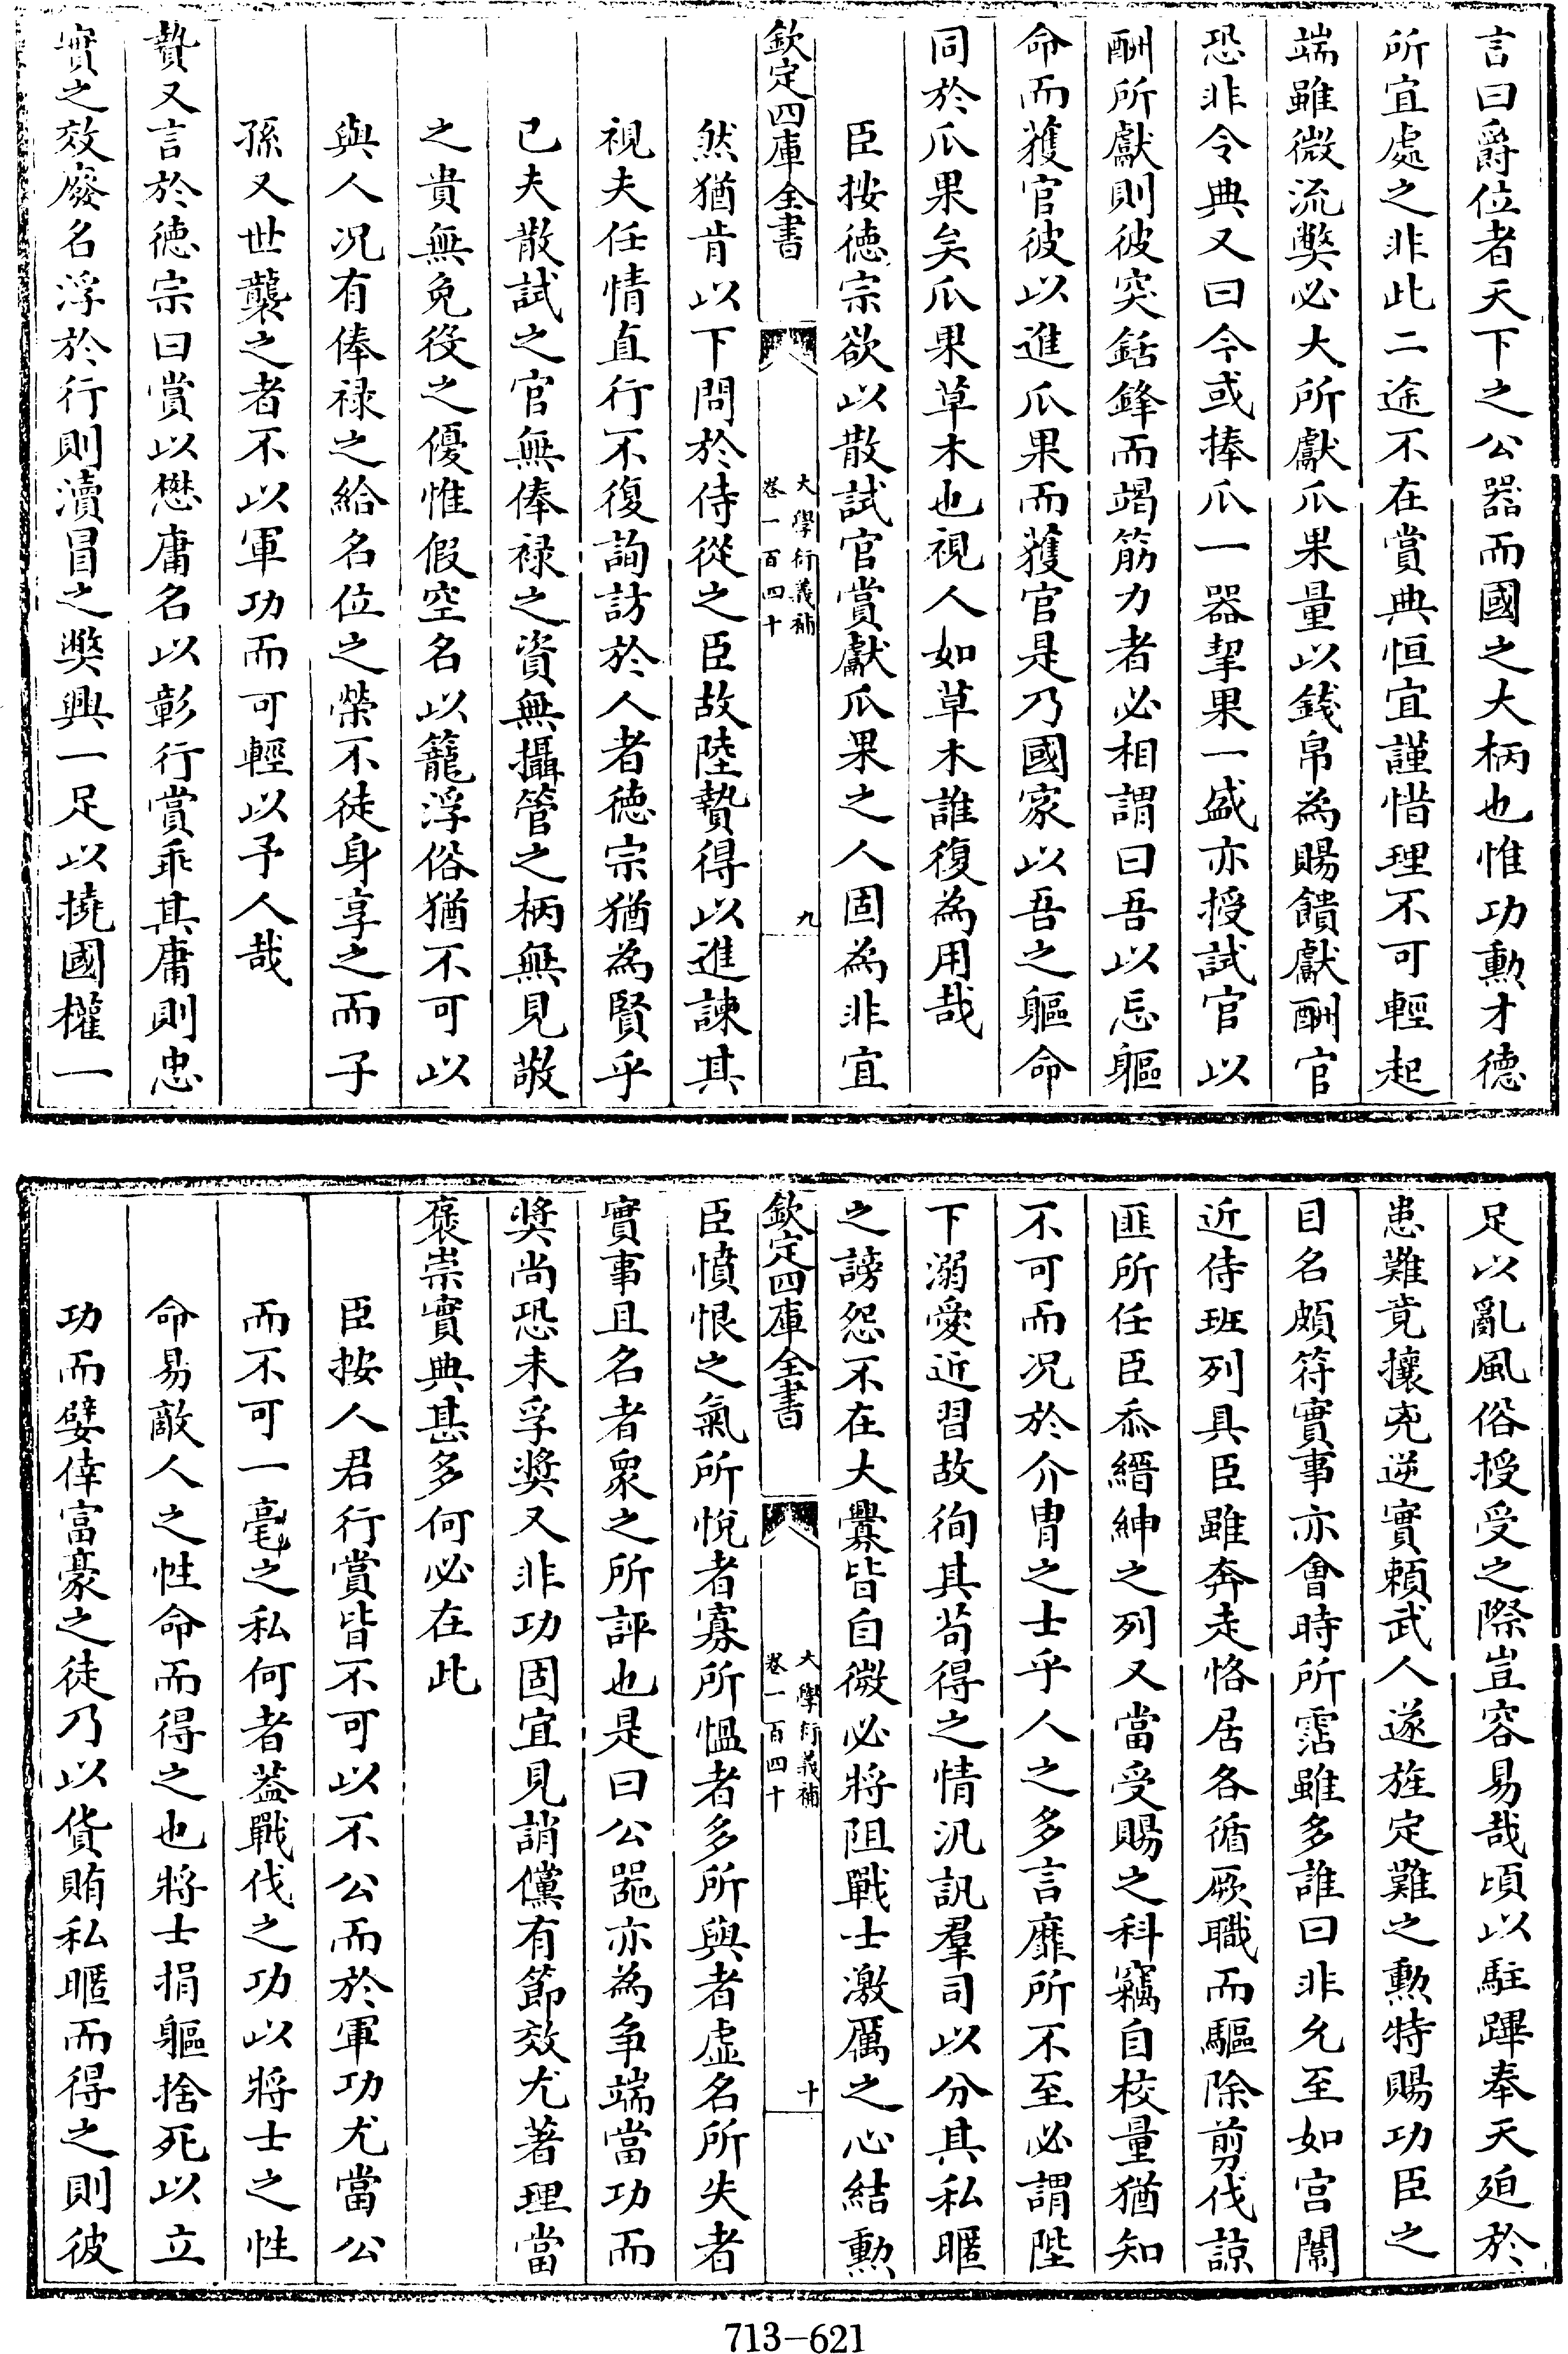 言曰爵位者天下之公器而國之大柄也惟功勲才徳
所宜處之非此二途不在賞典恒宜謹惜理不可輕起
端雖微流弊必大所獻爪果量以錢帛為賜饋獻酬官
恐非令典又曰今或捧爪一器挈果一盛亦授試官以
酬所獻則彼突銛鋒而竭筋力者必相謂曰吾以忘軀
命而獲官彼以進爪果而獲官是乃國家以吾之軀命
同於爪果矣爪果草木也視人如草木誰復為用哉
臣按徳宗欲以散試官賞獻爪果之人固為非宜
欽定四庫全書
大學衍義補
卷一百四十
九
然猶肯以下問於侍從之臣故陸贄得以進諫其
視夫任情直行不復詢訪於人者徳宗猶為賢乎
已夫散試之官無俸禄之資無攝管之柄無見敬
之貴無免役之優惟假空名以籠浮俗猶不可以
與人况有俸禄之給名位之榮不徒身享之而子
孫又世襲之者不以軍功而可輕以予人哉
贄又言於徳宗曰賞以懋庸名以彰行賞乖其庸則忠
實之效廢名浮於行則瀆冒之弊興一足以撓國權一
足以亂風俗授受之際豈容易哉頃以駐蹕奉天廹於
患難竟攘兇逆實頼武人遂旌定難之勲特賜功臣之
目名頗符實事亦會時所霑雖多誰曰非允至如宫闈
近侍班列具臣雖奔走恪居各循厥職而驅除剪伐諒
匪所任臣忝縉紳之列又當受賜之科竊自校量猶知
不可而况於介冑之士乎人之多言靡所不至必謂陛
下溺愛近習故徇其苟得之情汎訊羣司以分其私暱
之謗怨不在大釁皆自微必將阻戰士激厲之心結勲
欽定四庫全書
大學衍義補
卷一百四十
十
臣憤恨之氣所悅者寡所愠者多所與者虛名所失者
實事且名者衆之所評也是曰公器亦為争端當功而
奬尚恐未孚奬又非功固宜見誚儻有節效尤著理當
褒崇實典甚多何必在此
臣按人君行賞皆不可以不公而於軍功尤當公
而不可一毫之私何者葢戰伐之功以將士之性
命易敵人之性命而得之也將士捐軀捨死以立
功而嬖倖富豪之徒乃以貨賄私暱而得之則彼
713-621